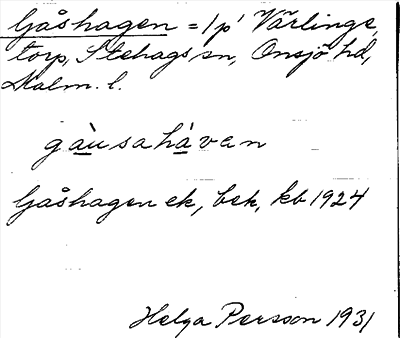 Gåshagen = 1 p' Värlinge,
torp, Stehags sn, Onsjö hd,
Malm. l.
gàusahàvan
Gåshagen ek, bek, kb 1924
Helga Persson 1931